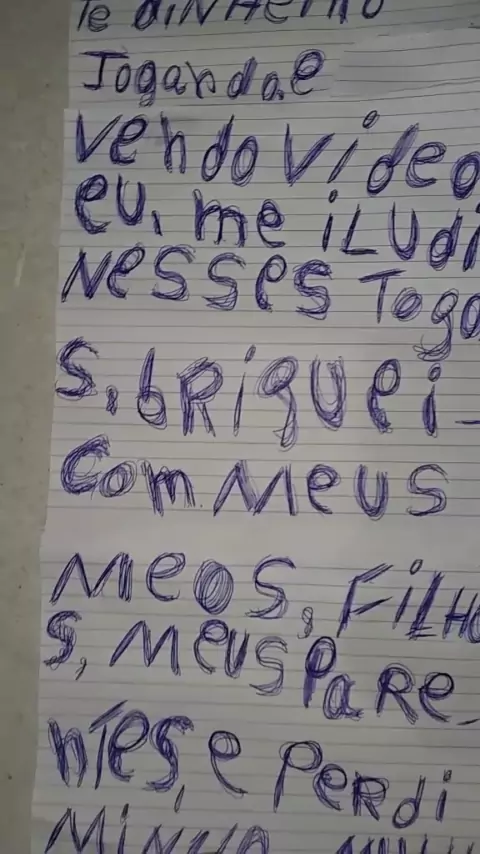 Te DiNHeiRO
Jogando.e
Vendo Video
eu, me iLUdi
NESSES Jogo
S, bRiguei-
Com Meus
Meos, FiLHo
S, Meus PaRe-
nTes, e Perdi
MiNHA